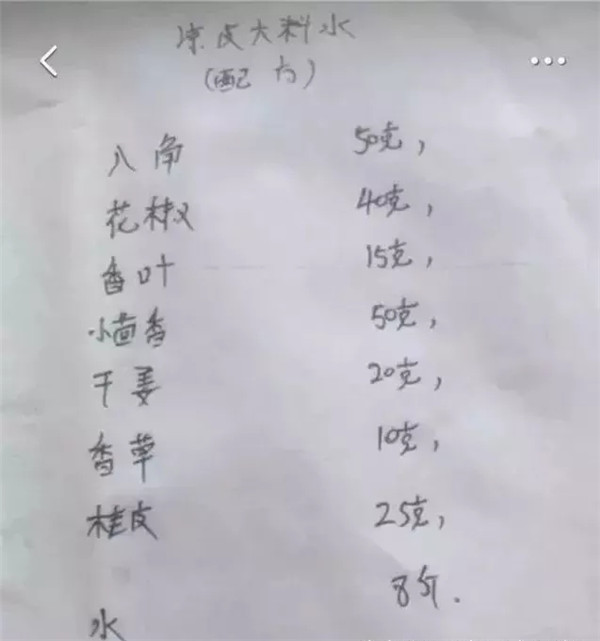 凉皮大料水
(配方)
八角 50克,
花椒 40克,
香叶 15克,
小茴香 50克,
干姜 20克,
香草 10克,
桂皮 25克,
水 8斤.